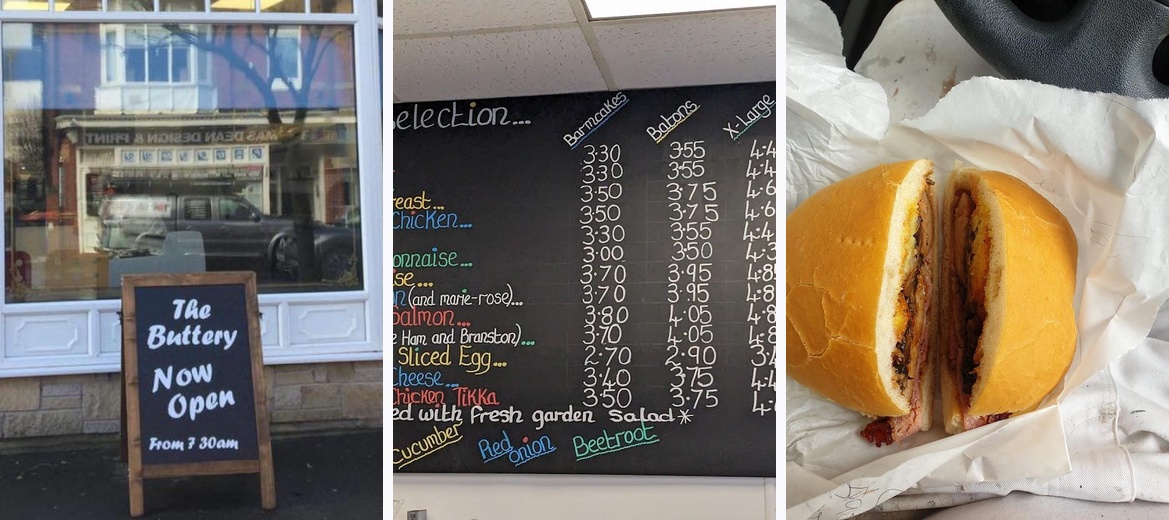 MAS DEAN DESIGN & PRINT
The
Buttery
Now
Open
From 7 30am
Selection...
Barmcakes
Batons
X-Large
3·30 3·55 4·4
3·30 3·55 4·4
reast... 3·50 3·75 4·6
Chicken... 3·50 3·75 4·6
3·30 3·55 4·4
onnaise... 3·00 3·50 4·3
ise... 3·70 3·95 4·8
n (and marie-rose)... 3·70 3·95 4·8
Salmon... 3·80 4·05 4·8
e Ham and Branston)... 3·70 4·05 4·8
Sliced Egg... 2·70 2·90 3·4
Cheese... 3·40 3·75 4·4
Chicken Tikka 3·50 3·75 4·
ed with fresh garden Salad*
Cucumber
Red
Onion
Beetroot